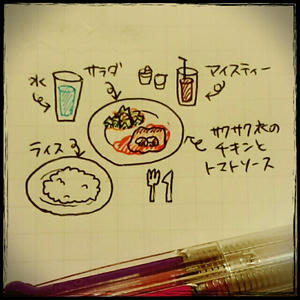 水
サラダ
アイスティー
ライス
サクサク衣の
チキンと
トマトソース